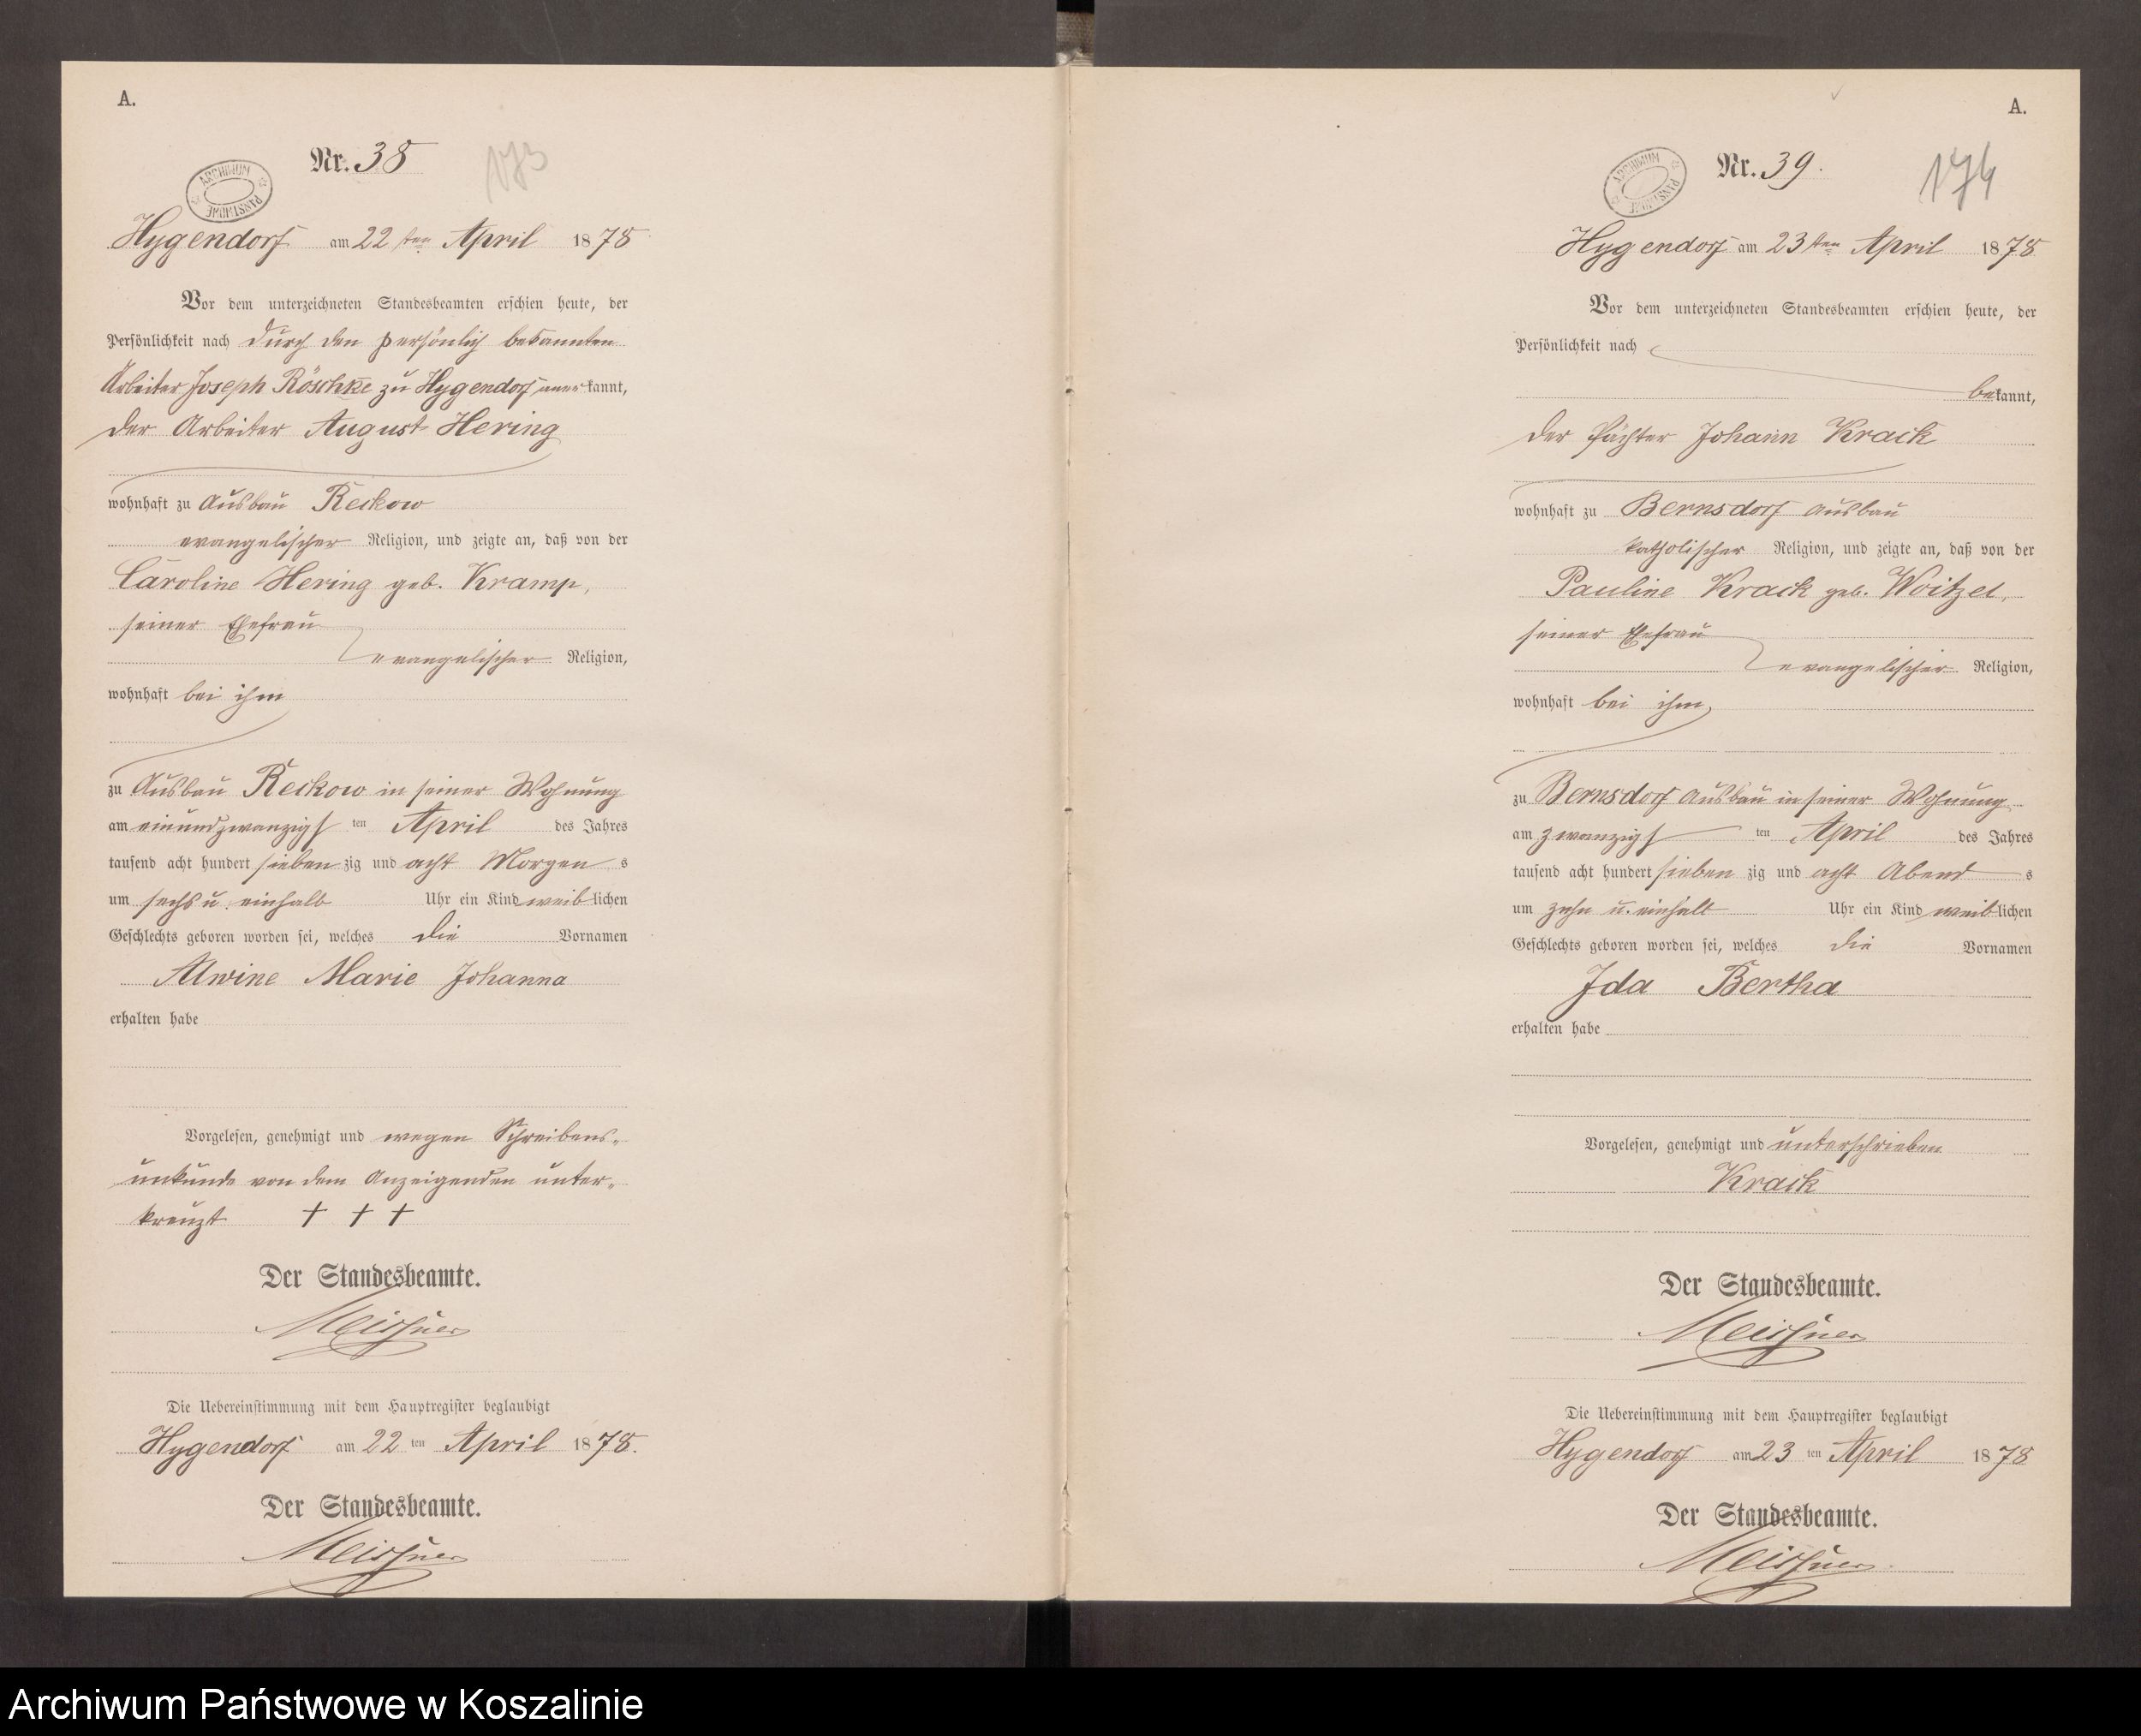 A.
Nr. 38
173
ARCHIWUM PAŃSTWOWE
Hygendorf am 22 ten April 1878
Vor dem unterzeichneten Standesbeamten erschien heute, der
Persönlichkeit nach durch den persönlich bekannten
Arbeiter Joseph Röschke zu Hygendorf anerkannt,
der Arbeiter August Hering
wohnhaft zu Ausbau Reckow
evangelischer Religion, und zeigte an, daß von der
Caroline Hering geb. Kramp,
seiner Ehefrau
evangelischer Religion,
wohnhaft bei ihm
zu Ausbau Reckow in seiner Wohnung
am einundzwanzigsten April des Jahres
tausend acht hundert siebenzig und acht Morgens
um sechs u. einhalb Uhr ein Kind weiblichen
Geschlechts geboren worden sei, welches die Vornamen
Alwine Marie Johanna
erhalten habe
Vorgelesen, genehmigt und wegen Schreibens-
unkunde von dem Anzeigenden unter-
kreuzt † † †
Der Standesbeamte.
Meissner
Die Uebereinstimmung mit dem Hauptregister beglaubigt
Hygendorf am 22 ten April 1878.
Der Standesbeamte.
Meissner
A.
Nr. 39.
174
ARCHIWUM PAŃSTWOWE
Hygendorf am 23 ten April 1878
Vor dem unterzeichneten Standesbeamten erschien heute, der
Persönlichkeit nach
bekannt,
der Pächter Johann Krack
wohnhaft zu Bernsdorf Ausbau
katholischer Religion, und zeigte an, daß von der
Pauline Krack geb. Woitzel,
seiner Ehefrau
evangelischer Religion,
wohnhaft bei ihm,
zu Bernsdorf Ausbau in seiner Wohnung
am zwanzigsten April des Jahres
tausend acht hundert siebenzig und acht Abends
um zehn u. einhalb Uhr ein Kind weiblichen
Geschlechts geboren worden sei, welches die Vornamen
Ida Bertha
erhalten habe
Vorgelesen, genehmigt und unterschrieben
Krack
Der Standesbeamte.
Meissner
Die Uebereinstimmung mit dem Hauptregister beglaubigt
Hygendorf am 23 ten April 1878
Der Standesbeamte.
Meissner
Archiwum Państwowe w Koszalinie